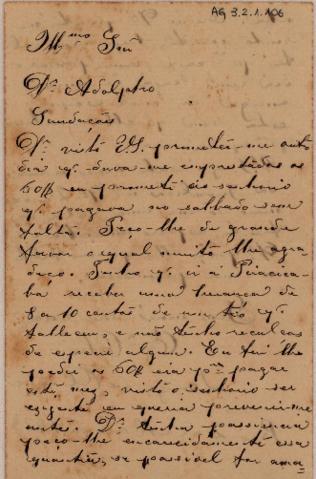 AG 3.2.1.106
Illmo Snr
Dr Adolpho
Saudações
Dr visto VS. prometer-me outro
dia q. dava-me emprestados os
60$ eu prometi ao senhorio
q. pagava no sabbado sem
falta. Peço-lhe de grande
favor o qual muito lhe agra-
deço. Tenho q. ir a Piracica-
ba receber uma herança de
8 a 10 contos de um tio q.
falleceu, e não tenho reculças
de especie alguma. Eu fui lhe
pedir os 60$ era pra pagar
este mez, visto o senhorio ser
exigente eu queria prevenir-me
antes. Dr tenha paciencia
peço-lhe encarecidamente essa
quantia, se possivel for ama